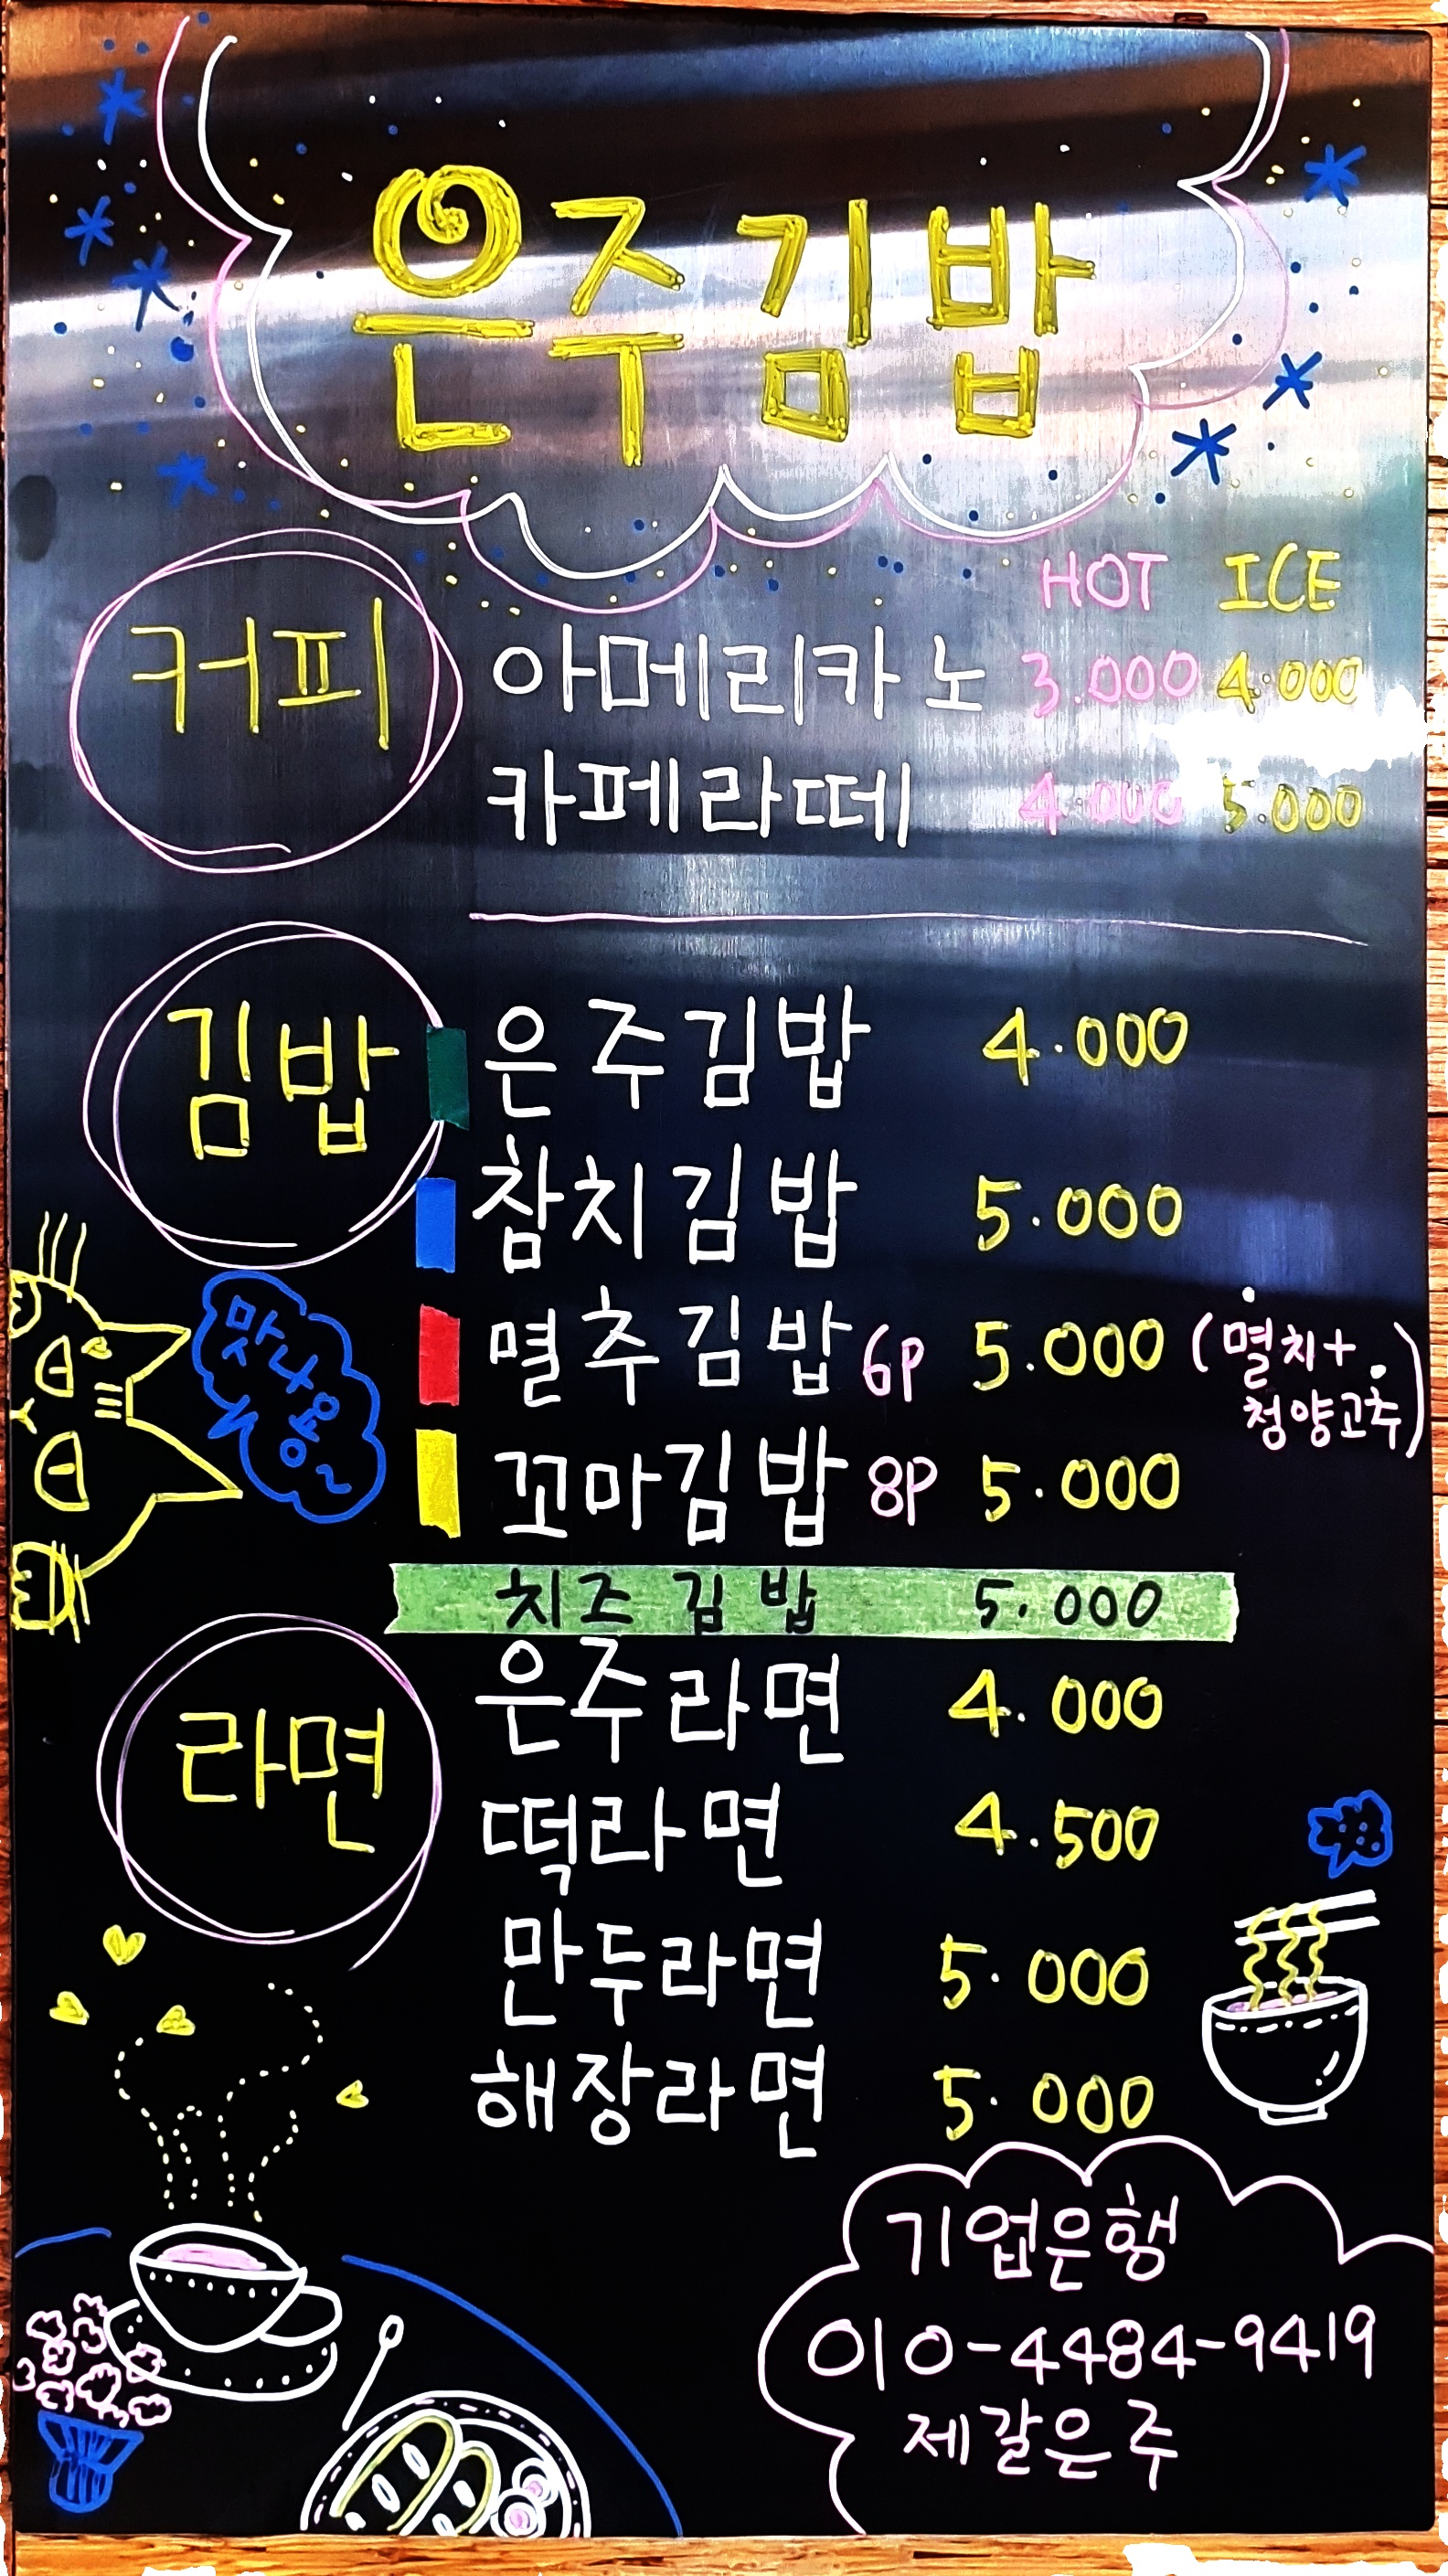 은주김밥
HOT ICE
커피
아메리카노 3.000 4.000
카페라떼 4.000 5.000
김밥
은주김밥 4.000
참치김밥 5.000
멸추김밥 6P 5.000 (멸치+
청양고추)
맛나옹~
꼬마김밥 8P 5.000
치즈김밥 5.000
라면
은주라면 4.000
떡라면 4.500
만두라면 5.000
해장라면 5.000
기업은행
010-4484-9419
제갈은주